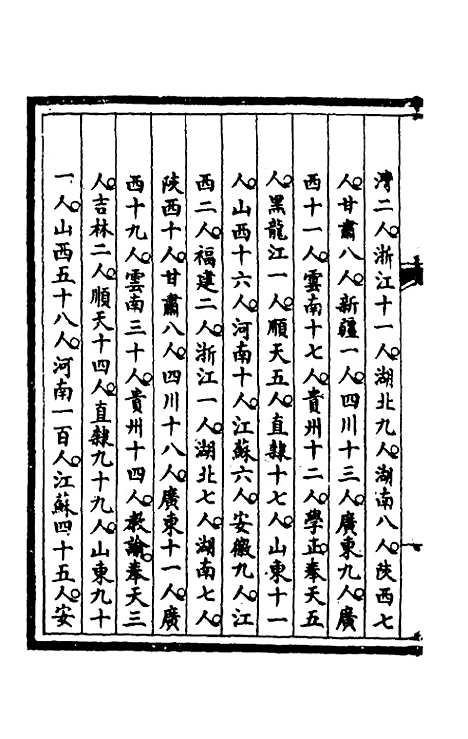 灣二人浙江十一人湖北九人湖南八人陝西七
人甘肅八人新疆一人四川十三人廣東九人廣
西十一人雲南十七人貴州十二人學正奉天五
人黑龍江一人順天五人直隸十七人山東十一
人山西十六人河南十人江蘇六人安徽九人江
西二人福建二人浙江一人湖北七人湖南七人
陝西十人甘肅八人四川十八人廣東十一人廣
西十九人雲南三十人貴州十四人教諭奉天三
人吉林二人順天十四人直隸九十九人山東九十
一人山西五十八人河南一百人江蘇四十五人安